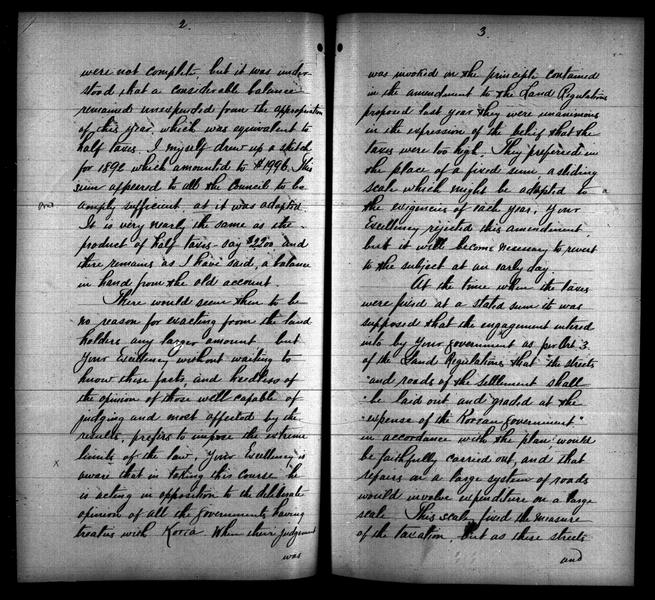 2.
were not complete, but it was under-
stood that a considerable balance
remained unexpended from the appropriation
of this year, which was equivalent to
half taxes. I myself drew up a sketch
for 1892 which amounted to $1996. This
sum appeared to all the Council to be
amply sufficient, as it was adopted.
It is very nearly the same as the
product of half taxes - say $2200 and
there remains as I have said, a balance
in hand from the old account.
There would seem then to be
no reason for exacting from the land
holders any larger amount but
Your Excellency without waiting to
know these facts, and heedless of
the opinion of those well capable of
judging and most affected by the
results, prefers to impose the extreme
limits of the law, Your Excellency is
x
aware that in taking this course he
is acting in opposition to the deliberate
opinion of all the governments having
treaties with Korea. When their judgement
was
3.
was invoked on the principle contained
in the amendment to the Land Regulations
proposed last year they were unanimous
in the expression of the belief that the
taxes were too high. They preferred in
the place of a fixed sum, a sliding
scale which might be adapted to
the exigencies of each year. Your
Excellency rejected this amendment,
but it will become necessary to revert
to the subject at an early day.
At the time when the taxes
were fixed at a stated sum it was
supposed that the engagement entered
into by your government as per Art 3.
of the Land Regulations that "the streets
"and roads of the settlement shall
"be laid out and graded at the
"expense of the Korean government"
in accordance with the plan would
be faithfully carried out, and that
repairs on a large system of roads
would involve expenditure on a large
scale. This scale fixed the measure
of the taxation, but as these streets
and